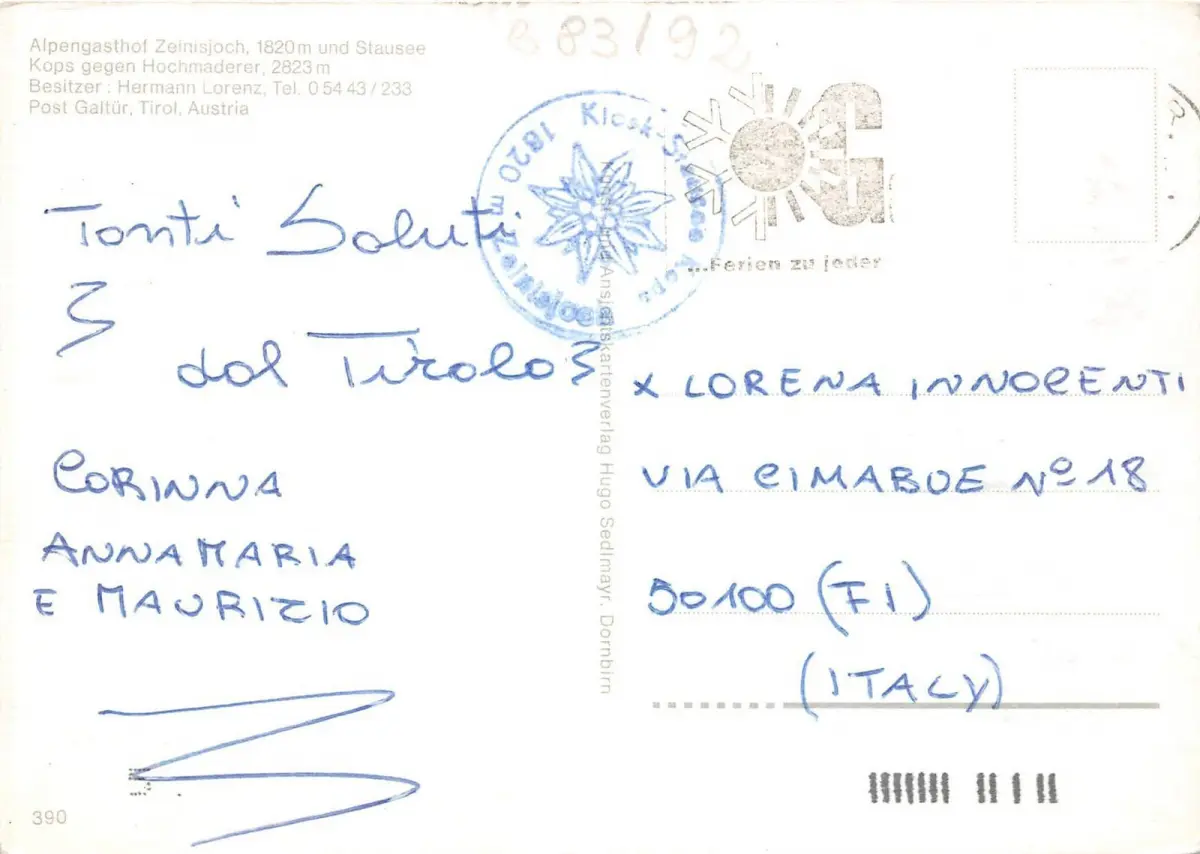 B 83/92
Alpengasthof Zeinisjoch, 1820 m und Stausee
Kops gegen Hochmaderer, 2823 m
Besitzer : Hermann Lorenz, Tel. 0 54 43 / 233
Post Galtür, Tirol, Austria
Tanti Saluti
dal Tirolo
CORINNA
ANNAMARIA
E MAURIZIO
390
1820 m Kiosk-Stausee Kops
Zeinisjoch
Ansichtskartenverlag Hugo Sedlmayr, Dornbirn
G
...Ferien zu jeder
a...
X LORENA INNOCENTI
VIA CIMABUE Nº 18
50100 (FI)
(ITALY)